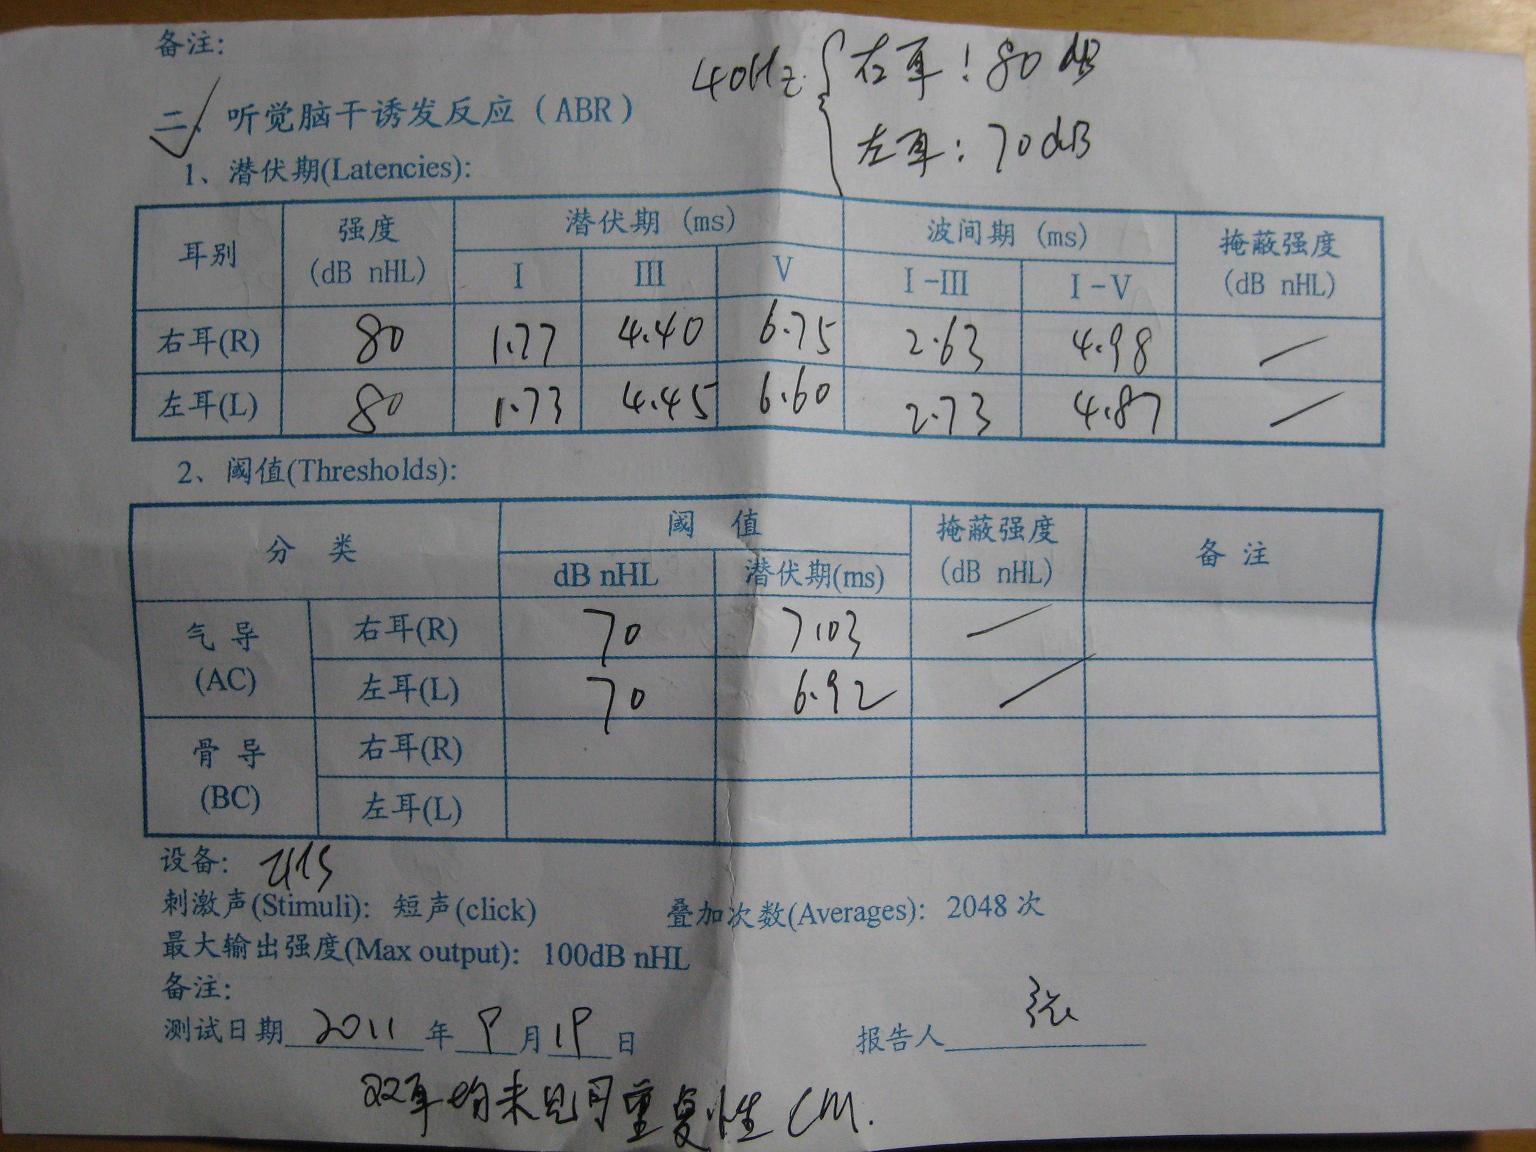 备注:
40Hz { 右耳: 80 dB
左耳: 70dB
二、听觉脑干诱发反应（ABR）
1、潜伏期(Latencies):
耳别 强度 (dB nHL) 潜伏期 (ms) 波间期 (ms) 掩蔽强度 (dB nHL)
I III V I-III I-V
右耳(R) 80 1.77 4.40 6.75 2.63 4.98 /
左耳(L) 80 1.73 4.45 6.60 2.73 4.87 /
2、阈值(Thresholds):
分 类 阈 值 掩蔽强度 (dB nHL) 备 注
dB nHL 潜伏期(ms)
气 导 (AC) 右耳(R) 70 7.03 /
左耳(L) 70 6.92 /
骨 导 (BC) 右耳(R)
左耳(L)
设备:
刺激声(Stimuli): 短声(click) 叠加次数(Averages): 2048 次
最大输出强度(Max output): 100dB nHL
备注:
测试日期 2011 年 9 月 19 日 报告人 张
双耳均未见可重复性 CM.